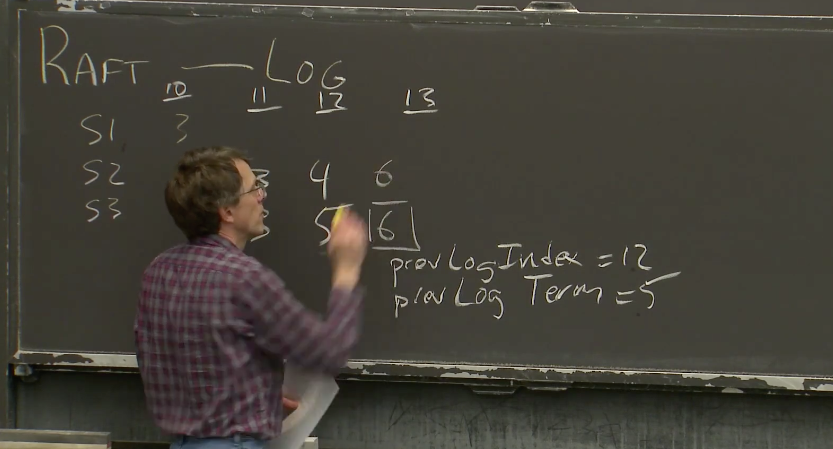 RAFT — LOG
10 11 12 13
S1 3
S2 3 4 6
S3 3 5 6
prevLogIndex = 12
prevLog Term = 5